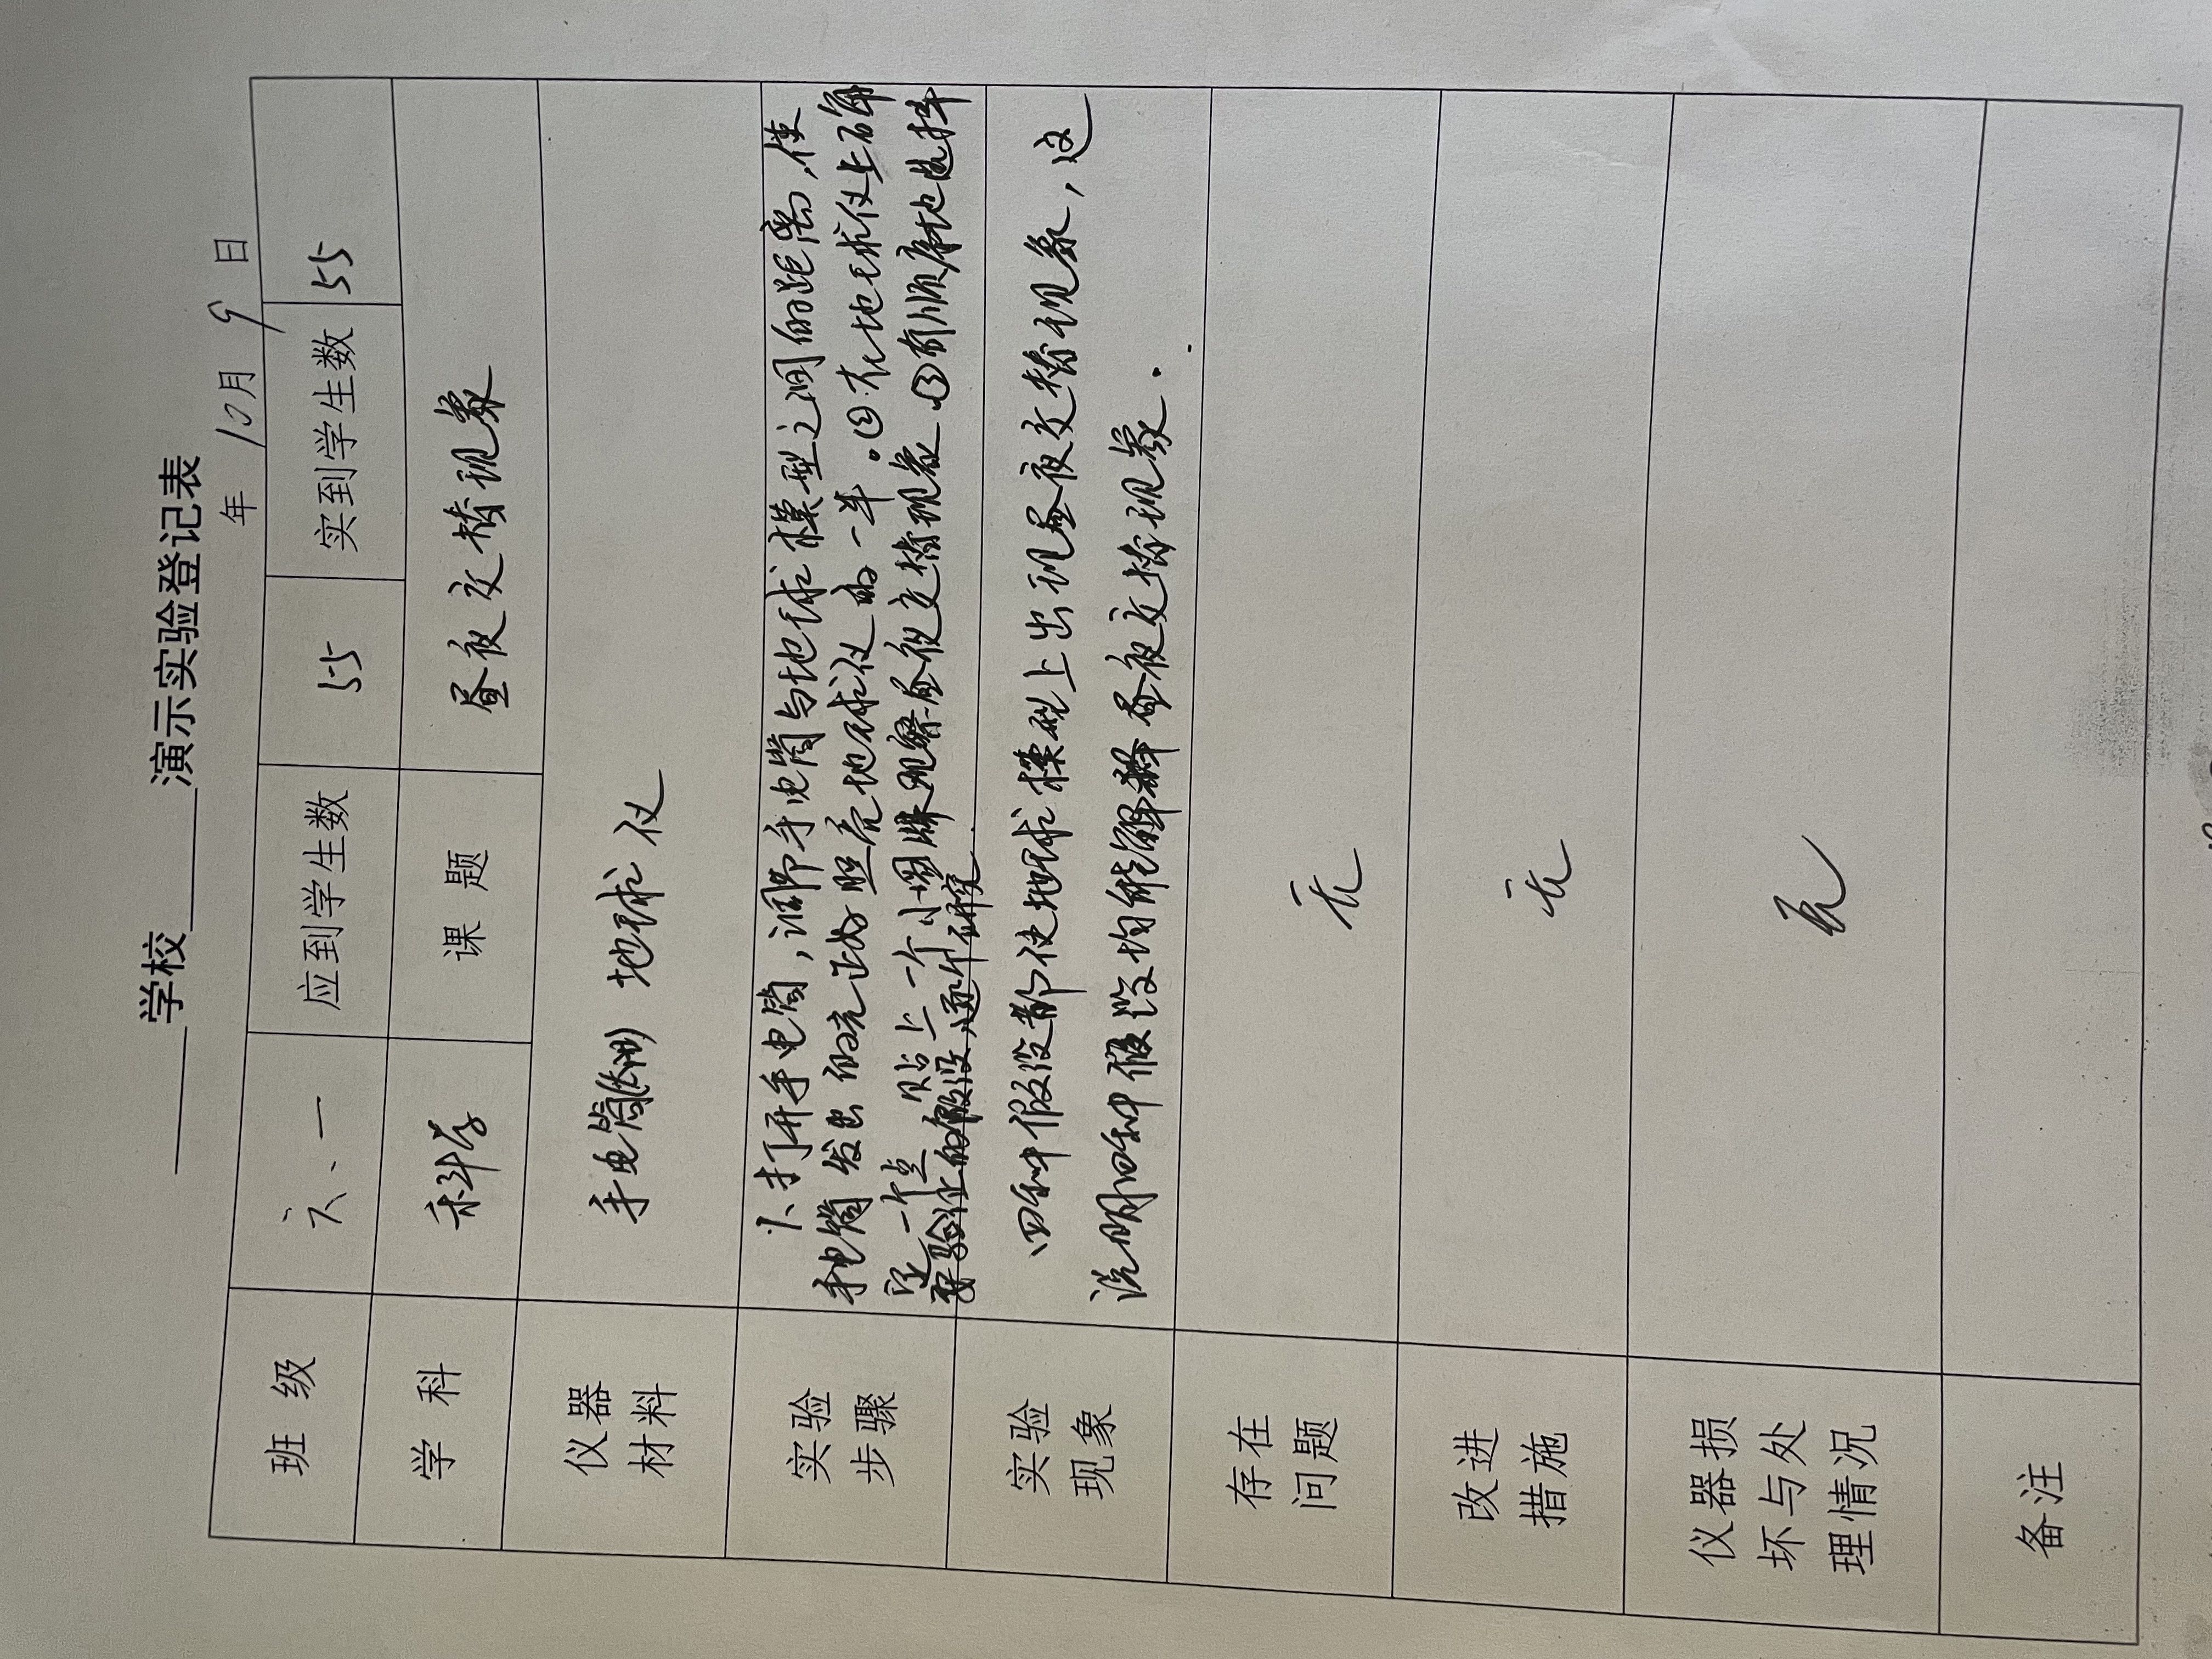 学校 演示实验登记表
年 10月 9日
班 级 六、一 应到学生数 55 实到学生数 55
学 科 科学 课 题 昼夜交替现象
仪器材料 手电筒 地球仪
实验步骤 1、打开手电筒，调节手电筒与地球模型之间的距离，使
手电筒发出的光正好照亮地球仪的一半。②在地球仪上确
定一个点 贴上一个小图牌观察昼夜交替现象。③有顺序地选择
要验证的假设，逐个研究
实验现象 四种假设都使地球模型上出现昼夜交替现象，这
说明四种假设均能解释昼夜交替现象.
存在问题 无
改进措施 无
仪器损坏与处理情况 无
备注